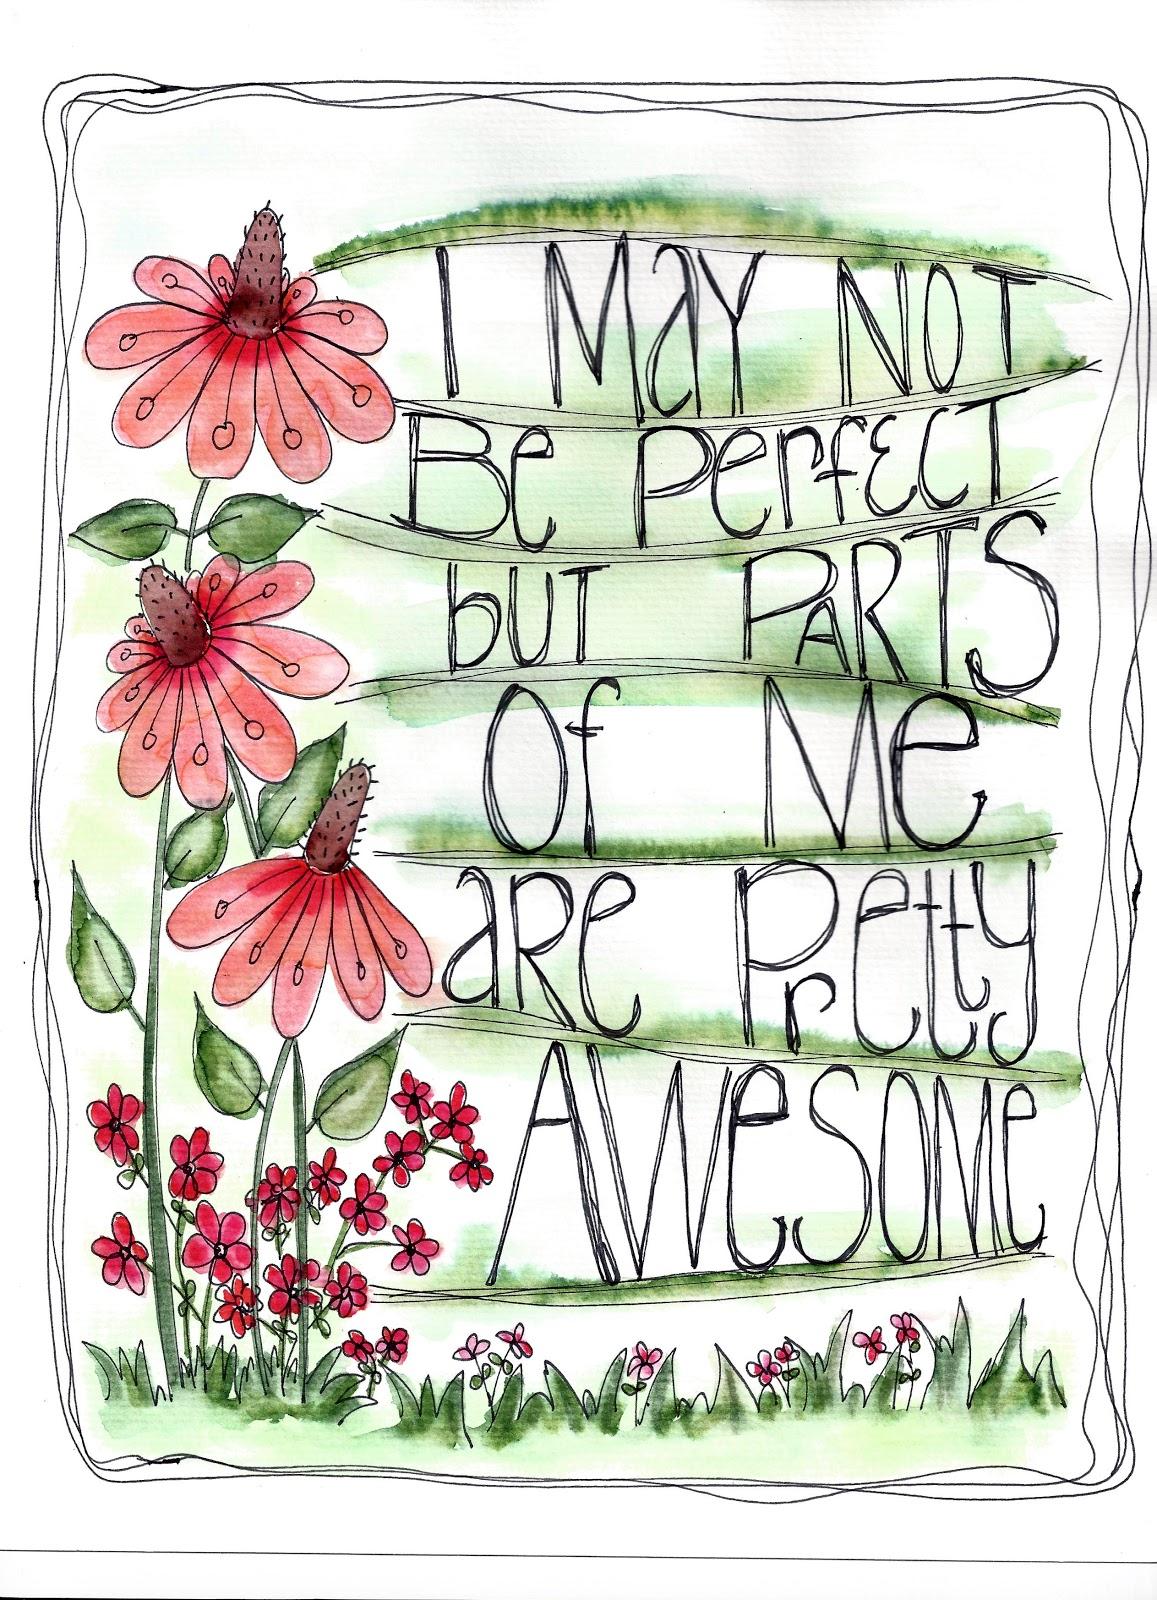 I MaY NOT
Be PerfecT
buT PARTS
Of Me
aRe Pretty
AWeSOMe